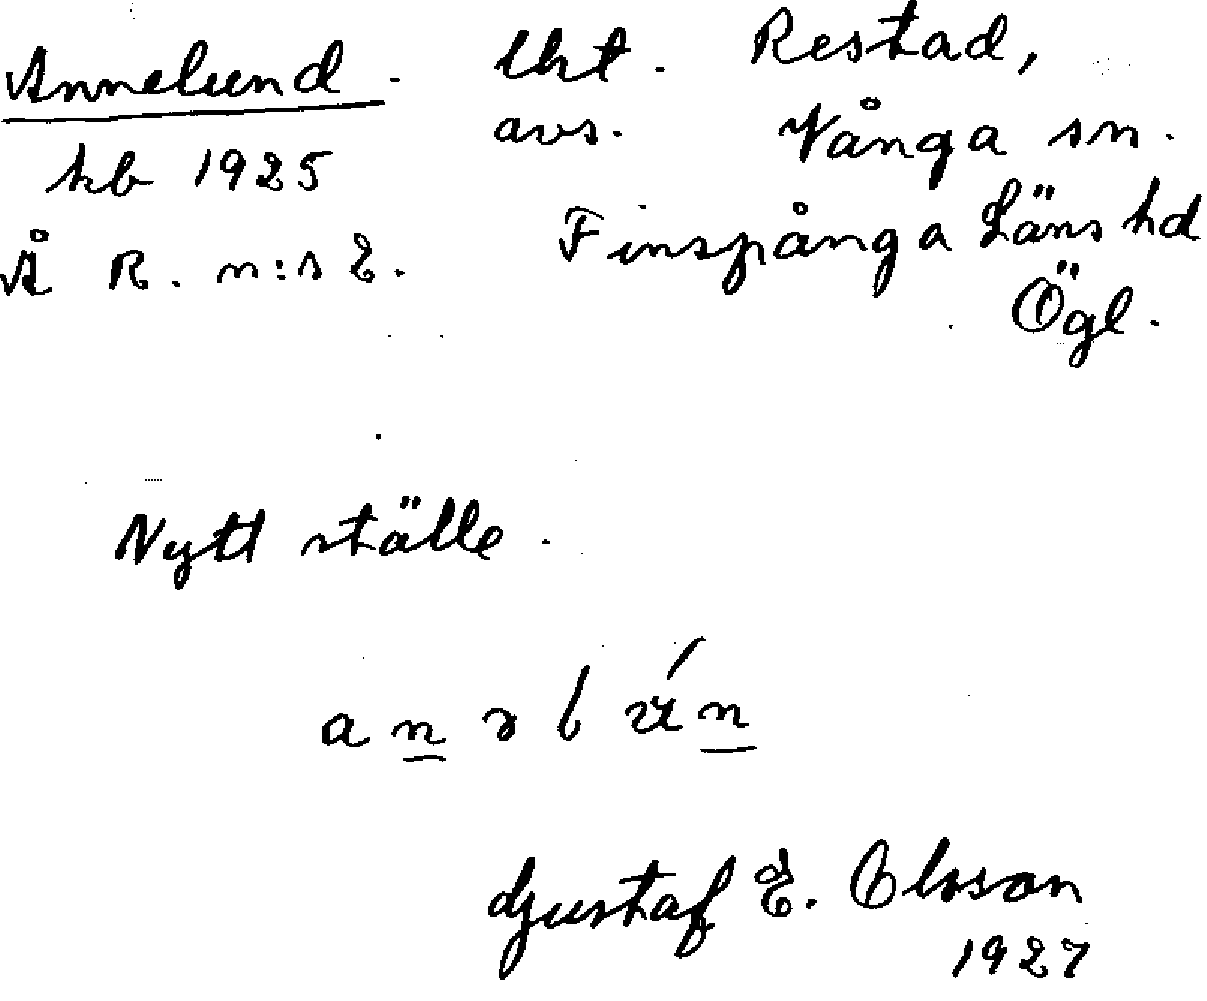 Annelund. lht. Restad,
avs. Vånga sn.
kb 1925
Å R. n:s E. Finspånga Läns hd
Ögl.
Nytt ställe.
Gustaf E. Olsson
1927